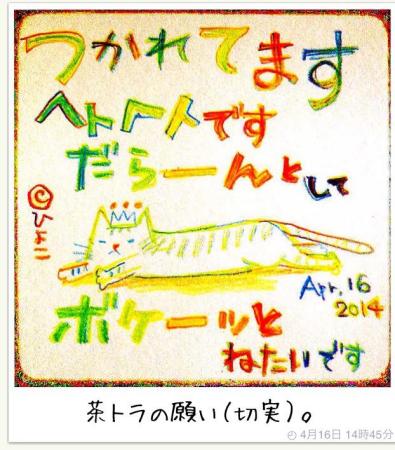 つかれてます
ヘトヘトです
だらーんとして
©ひょこ
Apr.16
2014
ボケーッと
ねたいです
茶トラの願い(切実)。
4月16日 14時45分